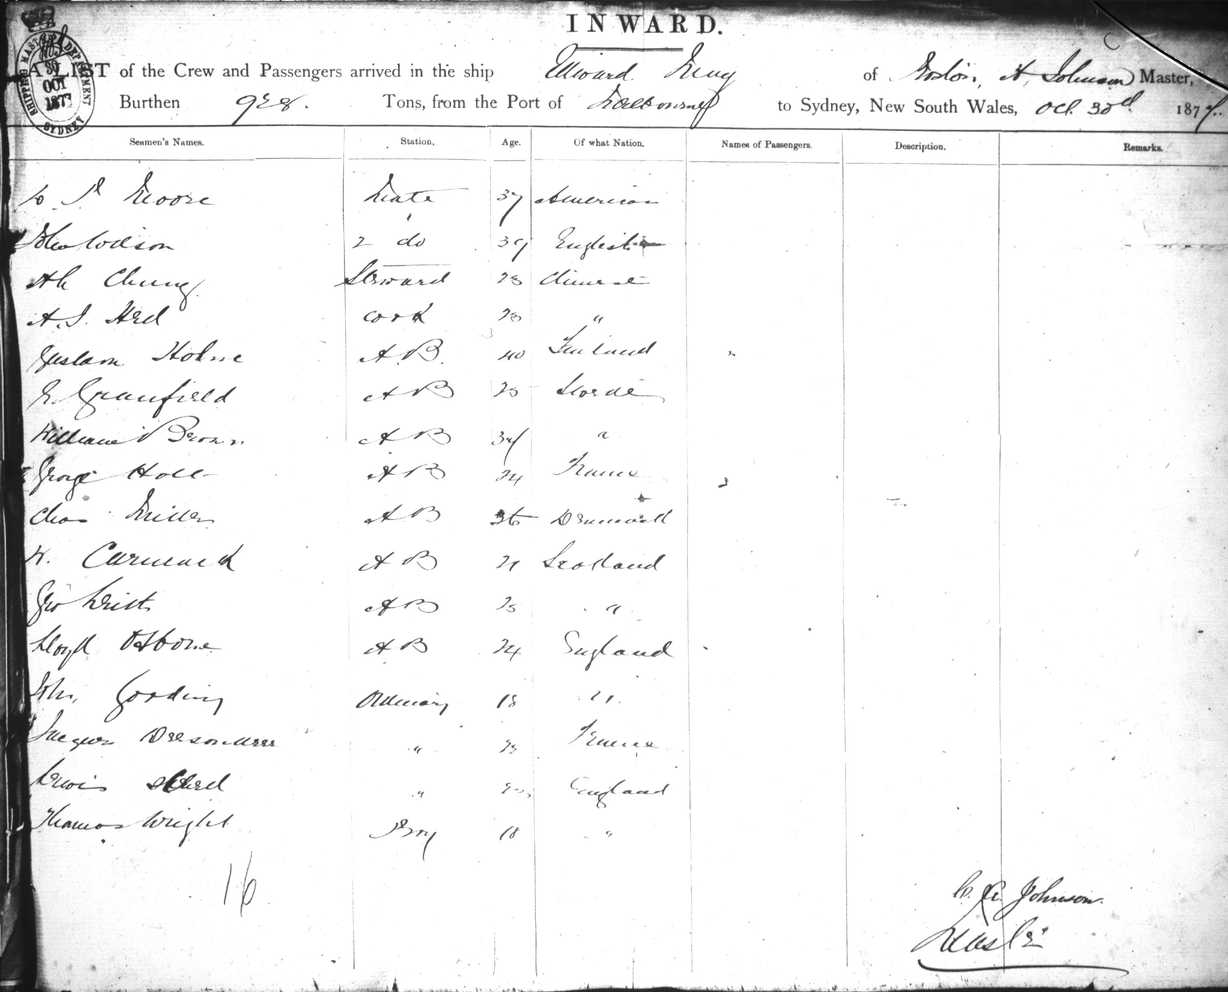 INWARD.
A LIST of the Crew and Passengers arrived in the ship Edward King of Boston, A Johnson Master,
SHIPPING MASTER'S DEPARTMENT SYDNEY 30 OCT 1877
Burthen 928. Tons, from the Port of Melbourne to Sydney, New South Wales, Oct. 30d 1877.
Seamen's Names. Station. Age. Of what Nation. Names of Passengers. Description. Remarks.
Moore Mate 37 American
John Wilson 2 do 39 English
Ah Chung Steward 23 Chinese
A. I. Hed cook 23 "
Gustaan Holme A.B. 40 Finland
Granfield A B 25 Swede
William Brown A B 34 "
George Holl A B 24 France
Chas Miller A B 36 Denmark
Carmack A B 21 Scotland
Geo Smith A B 23 "
Lloyd Osborne A B 24 England
John Gooding Ordinary 18 "
Jacques " 23 France
Lewis " England
Thomas Wright Boy 18 "
16
Johnson.
Master